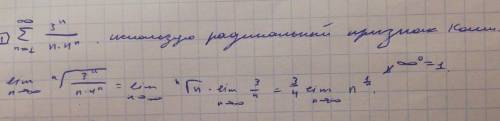 1) ∞ Σ n=1 3ⁿ / n·4ⁿ . использую радикальный признак Коши.
lim n→∞ ⁿ√(3ⁿ / n·4ⁿ) = lim n→∞ ⁿ√n · lim n→∞ 3/4 = 3/4 lim n→∞ n^(1/n). ∞⁰=1.